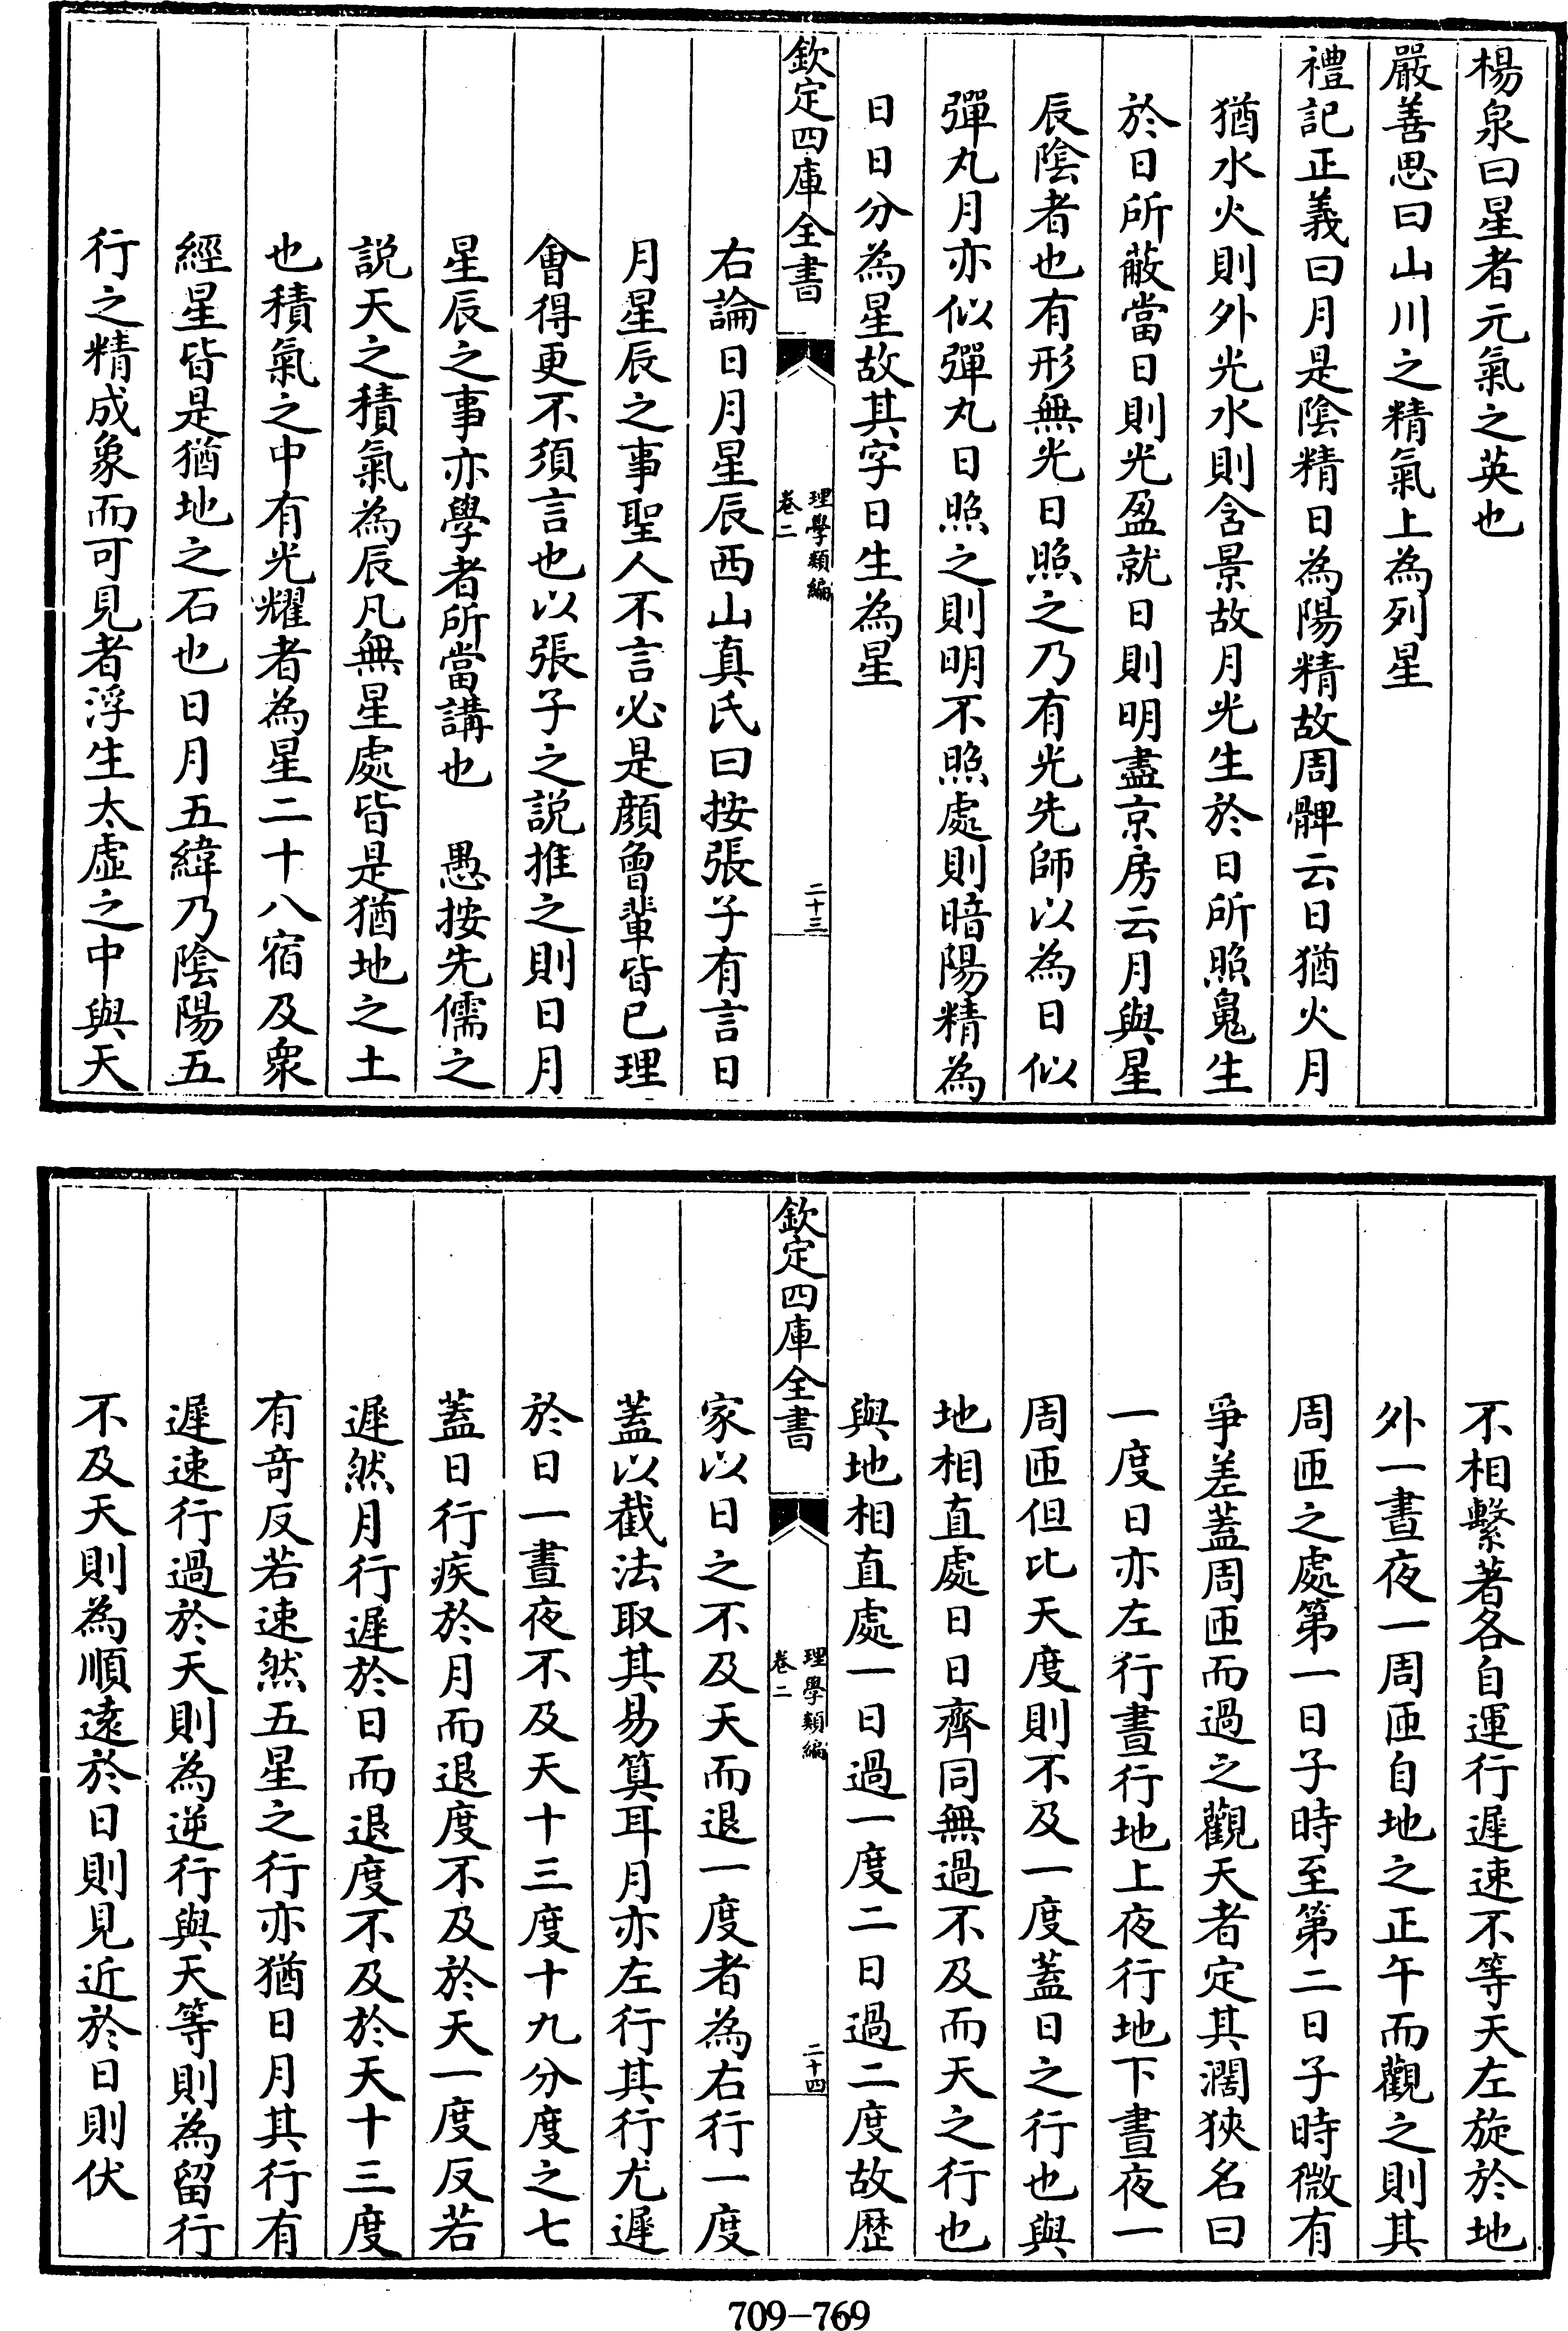 楊泉曰星者元氣之英也
嚴善思曰山川之精氣上為列星
禮記正義曰月是陰精日為陽精故周髀云日猶火月
猶水火則外光水則含景故月光生於日所照䰟生
於日所蔽當日則光盈就日則明盡京房云月與星
辰陰者也有形無光日照之乃有光先師以為日似
彈丸月亦似彈丸日照之則明不照處則暗陽精為
日日分為星故其字日生為星
欽定四庫全書
理學類編
卷二
二十三
右論日月星辰西山真氏曰按張子有言日
月星辰之事聖人不言必是顔曾輩皆已理
會得更不須言也以張子之説推之則日月
星辰之事亦學者所當講也　愚按先儒之
説天之積氣為辰凡無星處皆是猶地之土
也積氣之中有光耀者為星二十八宿及衆
經星皆是猶地之石也日月五緯乃陰陽五
行之精成象而可見者浮生太虛之中與天
不相繫著各自運行遲速不等天左旋於地
外一晝夜一周匝自地之正午而觀之則其
周匝之處第一日子時至第二日子時微有
爭差蓋周匝而過之觀天者定其濶狹名曰
一度日亦左行晝行地上夜行地下晝夜一
周匝但比天度則不及一度蓋日之行也與
地相直處日日齊同無過不及而天之行也
與地相直處一日過一度二日過二度故歴
欽定四庫全書
理學類編
卷二
二十四
家以日之不及天而退一度者為右行一度
蓋以截法取其易筭耳月亦左行其行尤遲
於日一晝夜不及天十三度十九分度之七
蓋日行疾於月而退度不及於天一度反若
遲然月行遲於日而退度不及於天十三度
有奇反若速然五星之行亦猶日月其行有
遲速行過於天則為逆行與天等則為留行
不及天則為順遠於日則見近於日則伏
709-769